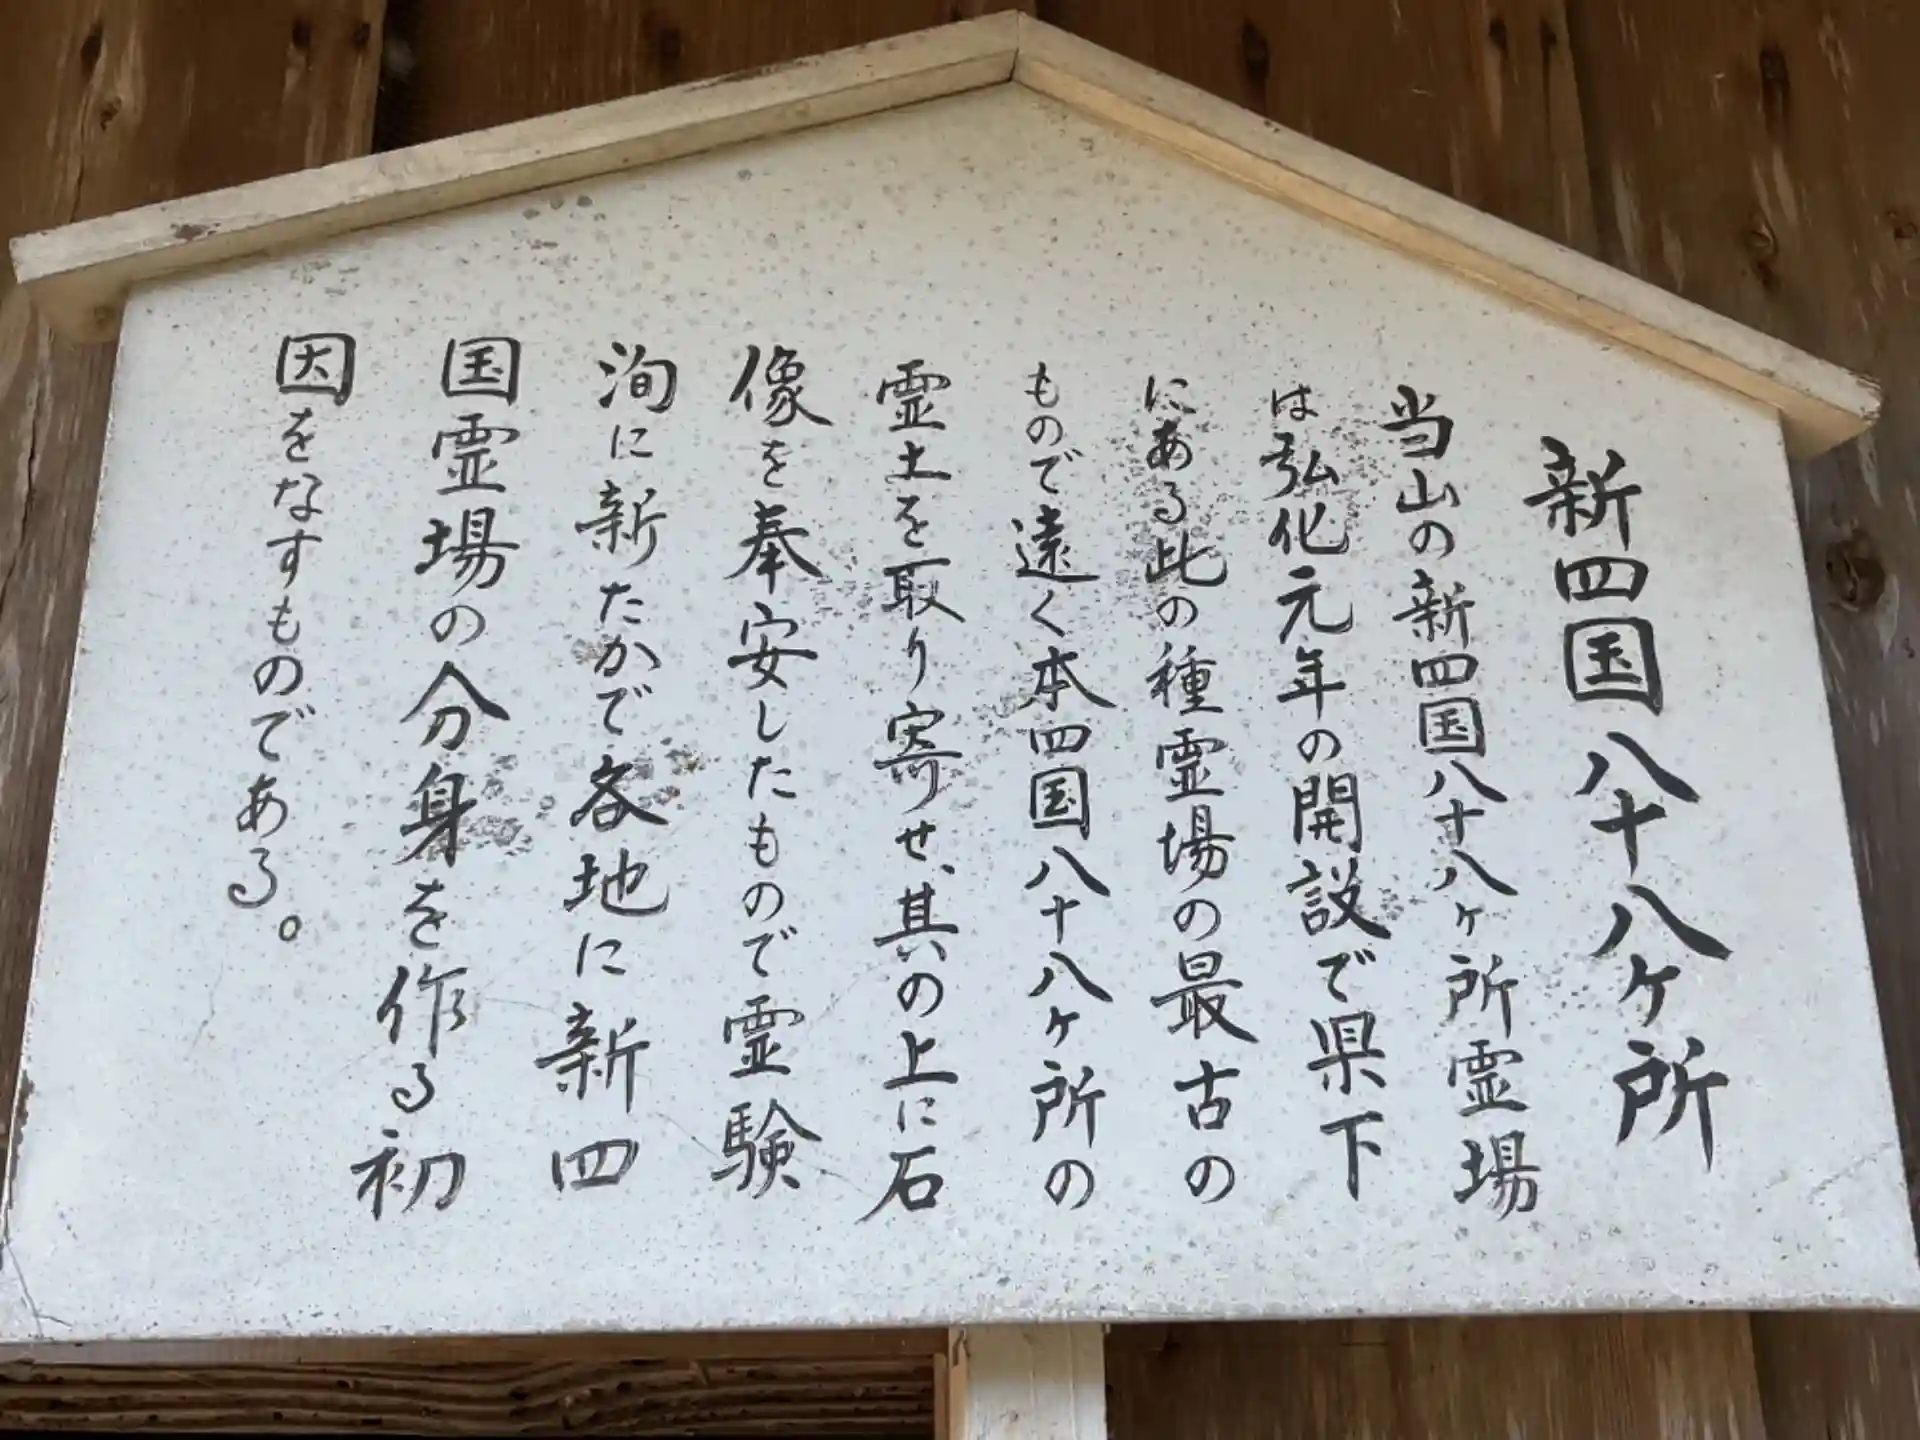 新四国八十八ヶ所
当山の新四国八十八ヶ所霊場
は弘化元年の開設で県下
にある此の種霊場の最古の
もので遠く本四国八十八ヶ所の
霊土を取り寄せ、其の上に石
像を奉安したもので霊験
洵に新たかで各地に新四
国霊場の分身を作る初
因をなすものである。